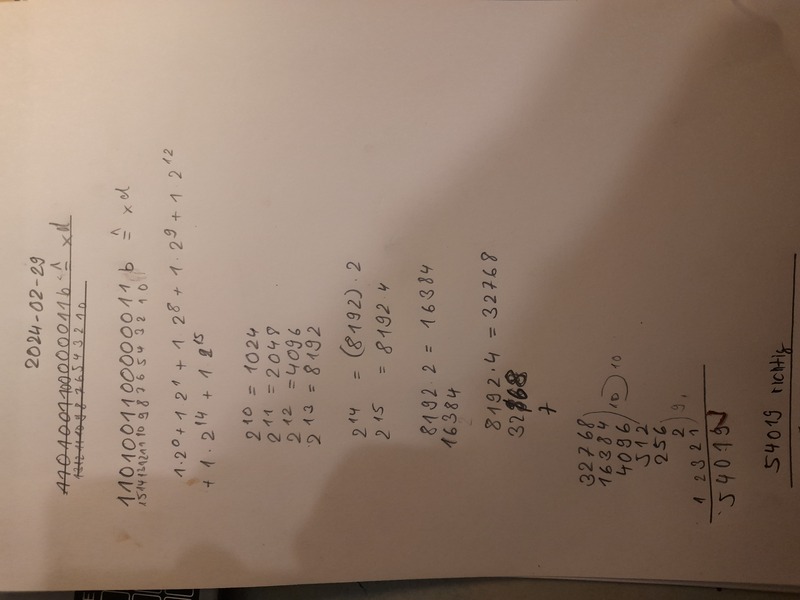 2024-02-29
1101001100000011b ≙ xd
1312 11 10 9 8 7 6 5 4 3 2 1 0
1101001100000011 b ≙ xd
15 14 13 12 11 10 9 8 7 6 5 4 3 2 1 0
1·2⁰ + 1 2¹ + 1 2⁸ + 1·2⁹ + 1 2¹²
+ 1·2¹⁴ + 1 2¹⁵
2¹⁰ = 1024
2¹¹ = 2048
2¹² = 4096
2¹³ = 8192
2¹⁴ = (8192)·2
2¹⁵ = 8192 4
8192·2 = 16384
16384
8192·4 = 32768
32768
7
32768
16384
4096
512
256
2
1
10
10
9
1 2 3 2 1
54019
54019 richtig